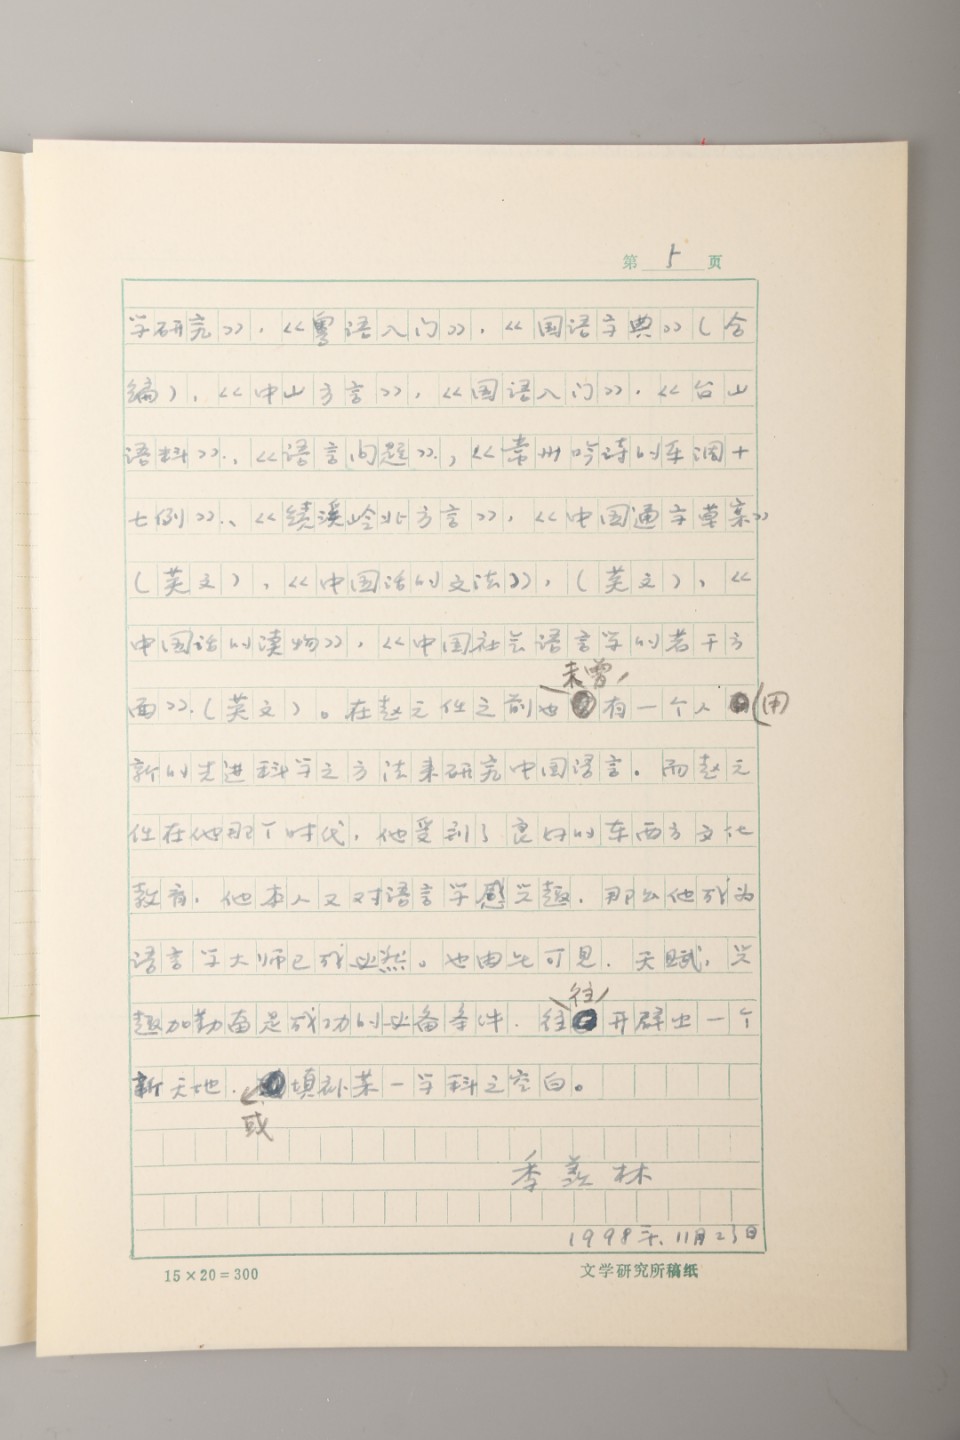 第 5 页
学研究》,《粤语入门》,《国语字典》(合
编),《中山方言》,《国语入门》,《台山
语料》、《语言问题》,《常州吟诗的乐调十
七例》、《绩溪岭北方言》,《中国通字草案》
(英文),《中国话的文法》,(英文),《
中国话的读物》,《中国社会语言学的若干方
面》(英文)。在赵元任之前也未曾有一个人用
新的先进科学之方法来研究中国语言。而赵元
任在他那个时代,他受到了良好的东西方文化
教育,他本人又对语言学感兴趣,那么他成为
语言学大师已成必然。也由此可见,天赋,兴
趣加勤奋是成功的必备条件,往往开辟出一个
新天地,或填补某一学科之空白。
季羡林
1998年,11月23日
15×20=300
文学研究所稿纸